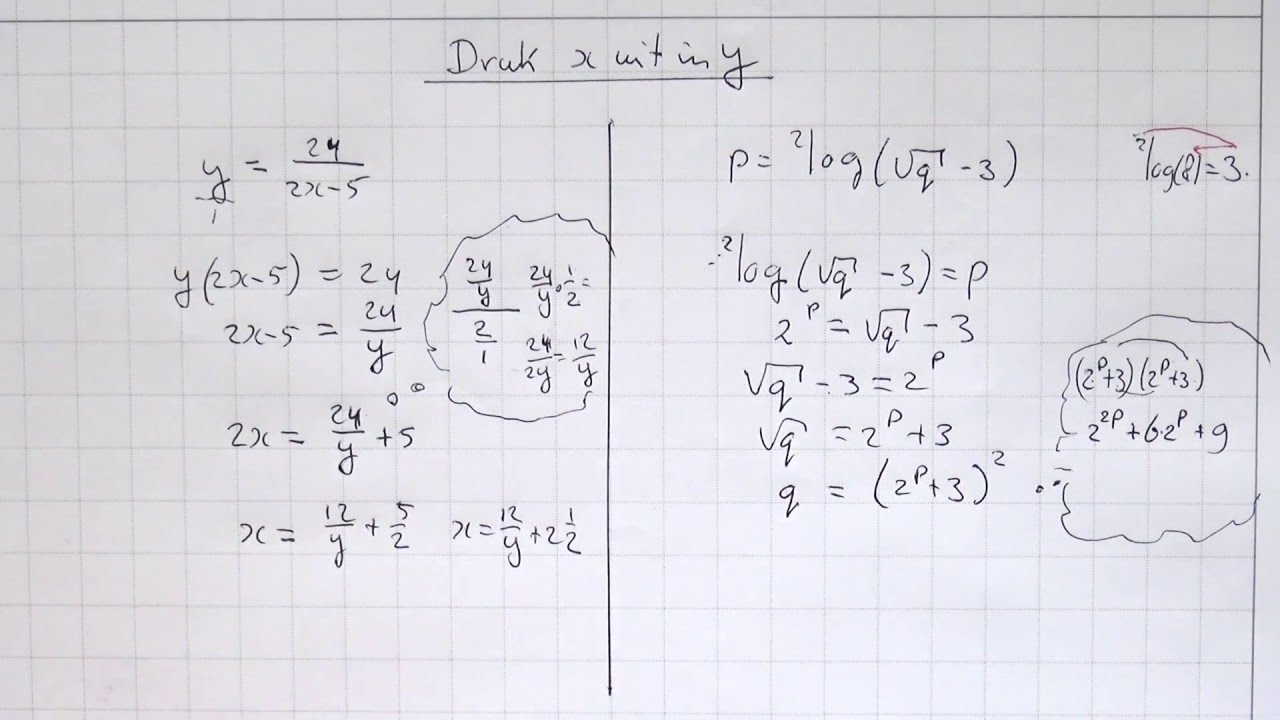 Druk x uit in y
y/1 = 24/(2x-5)
y(2x-5) = 24
2x-5 = 24/y
2x = 24/y + 5
x = 12/y + 5/2   x = 12/y + 2 1/2
(24/y)/(2/1)   24/y · 1/2 =
24/2y = 12/y
p = ²log(√q - 3)
²log(8) = 3.
²log(√q - 3) = p
2^p = √q - 3
√q - 3 = 2^p
√q = 2^p + 3
q = (2^p+3)^2
(2^p+3)(2^p+3)
2^2p + 6·2^p + 9